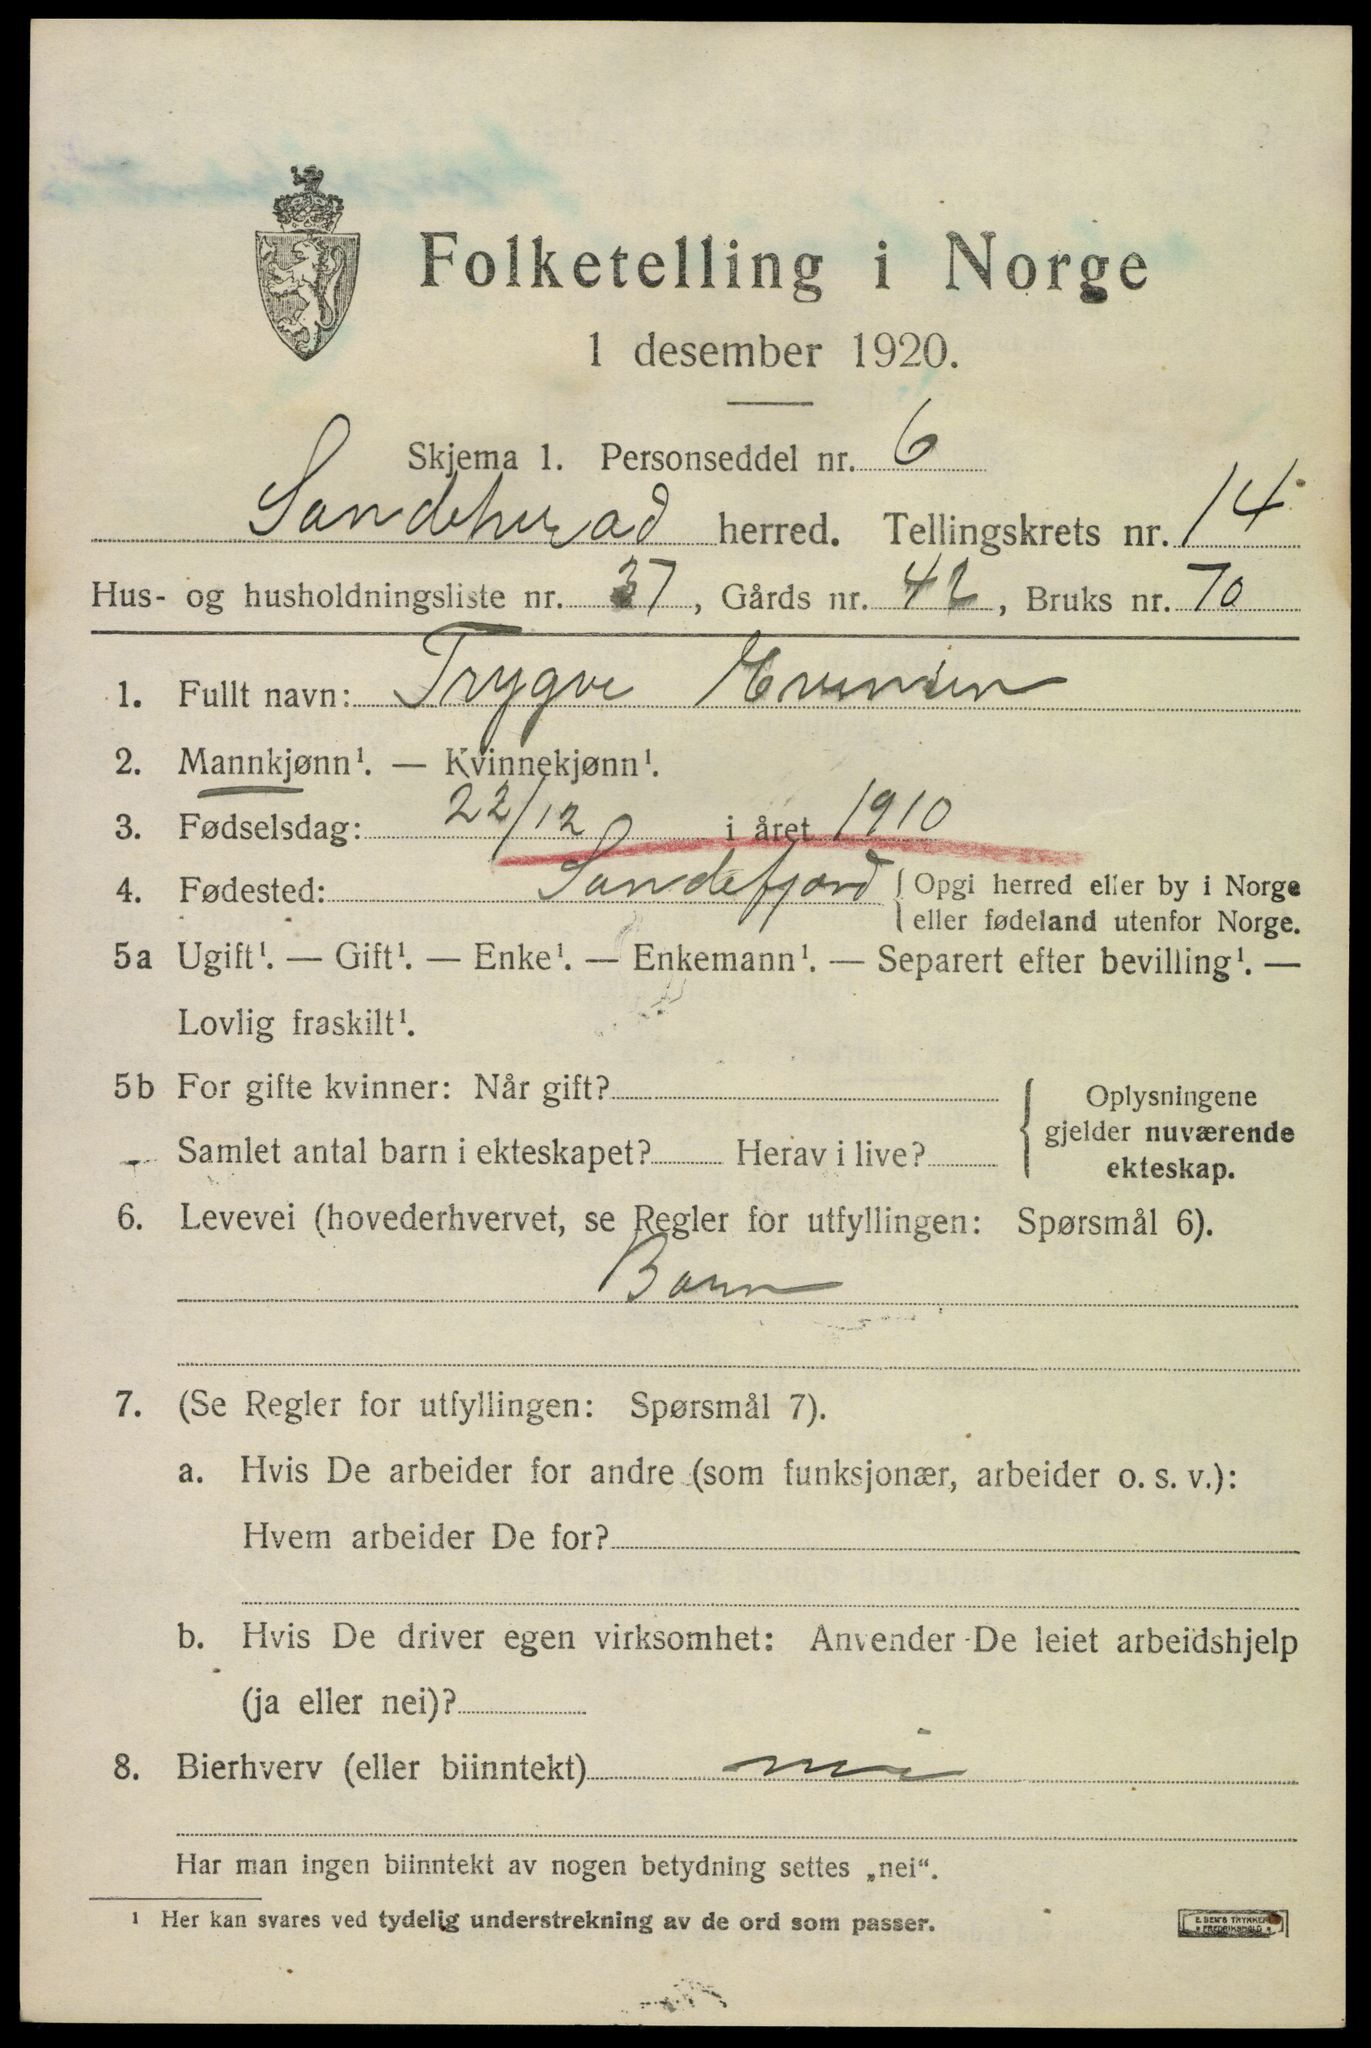 Folketelling i Norge
1 desember 1920.
Skjema 1. Personseddel nr. 6
Sandeherad herred. Tellingskrets nr. 14
Hus- og husholdningsliste nr. 37, Gårds nr. 42, Bruks nr. 70
1. Fullt navn: Trygve Evensen
2. Mannkjønn¹. — Kvinnekjønn¹.
3. Fødselsdag: 22/12 i året 1910
4. Fødested: Sandefjord { Opgi herred eller by i Norge
eller fødeland utenfor Norge.
5a Ugift¹. — Gift¹. — Enke¹. — Enkemann¹. — Separert efter bevilling¹. —
Lovlig fraskilt¹.
5b For gifte kvinner: Når gift?
Samlet antal barn i ekteskapet? Herav i live?
Oplysningene
gjelder nuværende
ekteskap.
6. Levevei (hovederhvervet, se Regler for utfyllingen: Spørsmål 6).
Barn
7. (Se Regler for utfyllingen: Spørsmål 7).
a. Hvis De arbeider for andre (som funksjonær, arbeider o. s. v.):
Hvem arbeider De for?
b. Hvis De driver egen virksomhet: Anvender De leiet arbeidshjelp
(ja eller nei)?
8. Bierhverv (eller biinntekt) nei
Har man ingen biinntekt av nogen betydning settes „nei“.
¹ Her kan svares ved tydelig understrekning av de ord som passer.